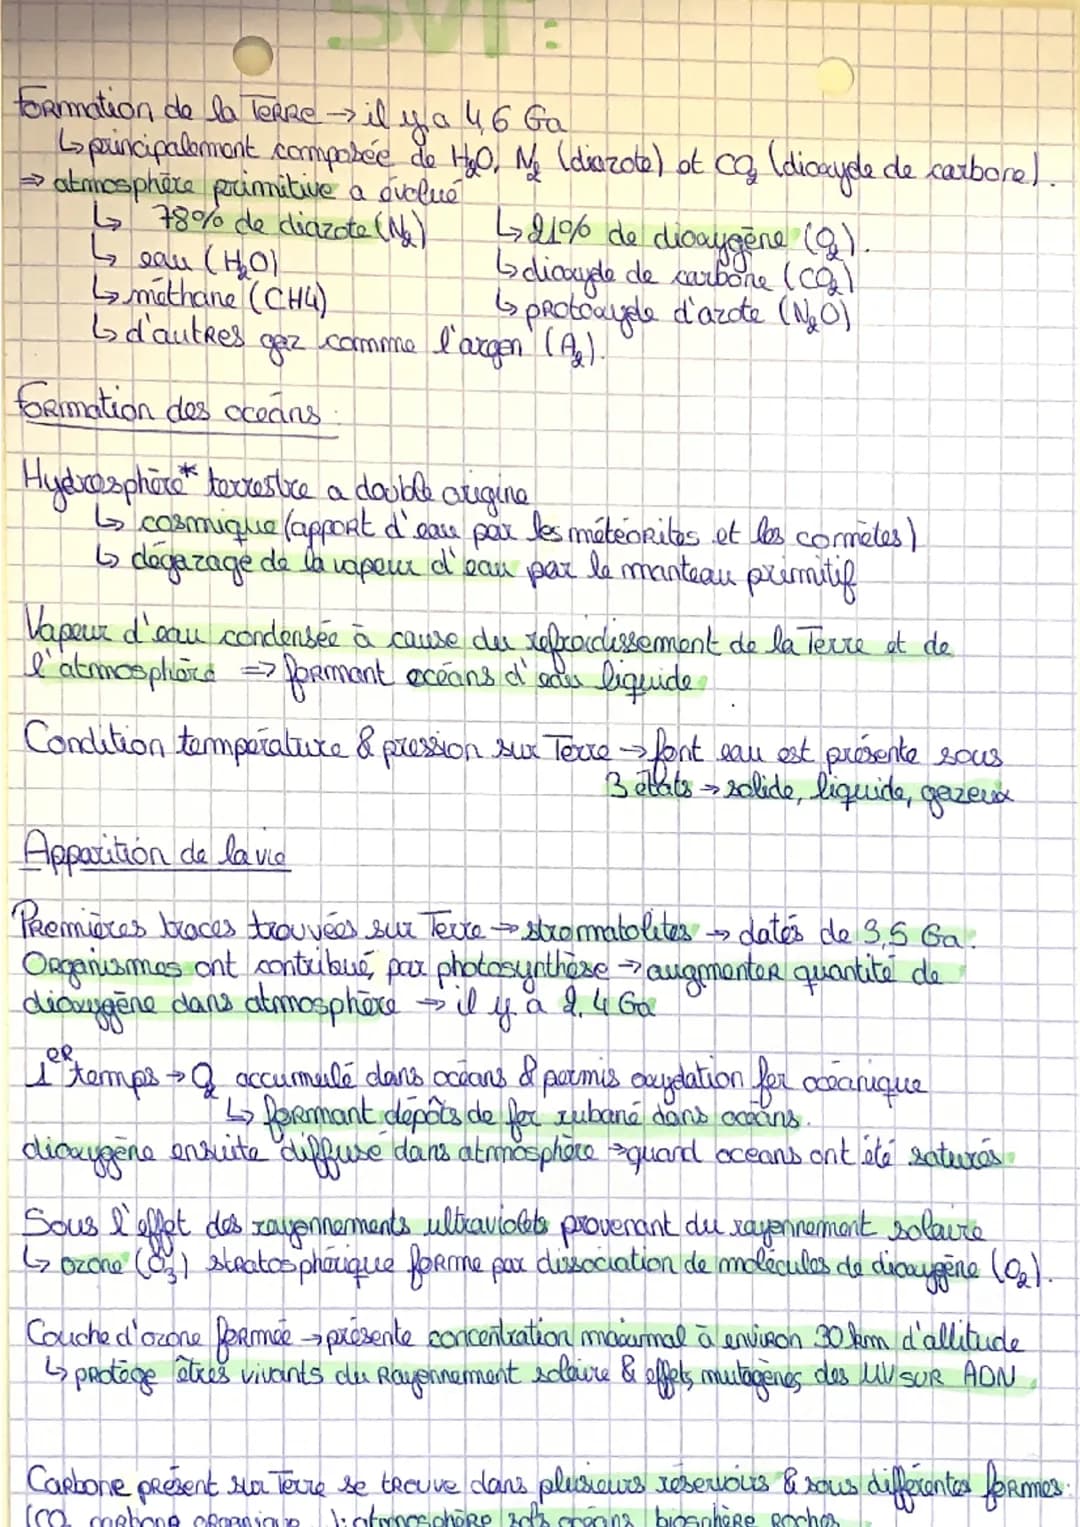 SVT:
formation de la TERRE → il y a 4,6 Ga
↳ principalement composée de H₂O, N₂ (diazote) et CO₂ (dioxyde de carbone).
⇒ atmosphère primitive a évolué
↳ 78% de diazote (N₂) ↳ 21% de dioxygène (O₂).
↳ eau (H₂O) ↳ dioxyde de carbone (CO₂)
↳ méthane (CH4) ↳ protoxyde d'azote (N₂O)
↳ d'autres gaz comme l'argon (A₂).
formation des océans :
Hydrosphère* terrestre a double origine
↳ cosmique (apport d'eau par les météorites et les comètes)
↳ dégazage de la vapeur d'eau par le manteau primitif
Vapeur d'eau condensée à cause du refroidissement de la Terre et de
l'atmosphère ⇒ formant océans d'eau liquide
Condition température & pression sur Terre → font eau est présente sous
3 états → solide, liquide, gazeux
Apparition de la vie
Premières traces trouvées sur Terre → stromatolites → datés de 3,5 Ga.
Organismes ont contribué, par photosynthèse → augmenter quantité de
dioxygène dans atmosphère → il y a 2,4 Ga
1er temps → O₂ accumulé dans océans & permis oxydation fer océanique
↳ formant dépôts de fer rubané dans océans.
dioxygène ensuite diffusé dans atmosphère → quand océans ont été saturés
Sous l'effet des rayonnements ultraviolets provenant du rayonnement solaire
↳ ozone (O₃) stratosphérique forme par dissociation de molécules de dioxygène (O₂).
Couche d'ozone formée → présente concentration maximal à environ 30 km d'altitude
↳ protège êtres vivants du Rayonnement solaire & effets mutagènes des UV SUR ADN
Carbone présent sur Terre se trouve dans plusieurs réservoirs & sous différentes formes
(CO₂ carbone organique atmosphère sols océans biosphère Roches